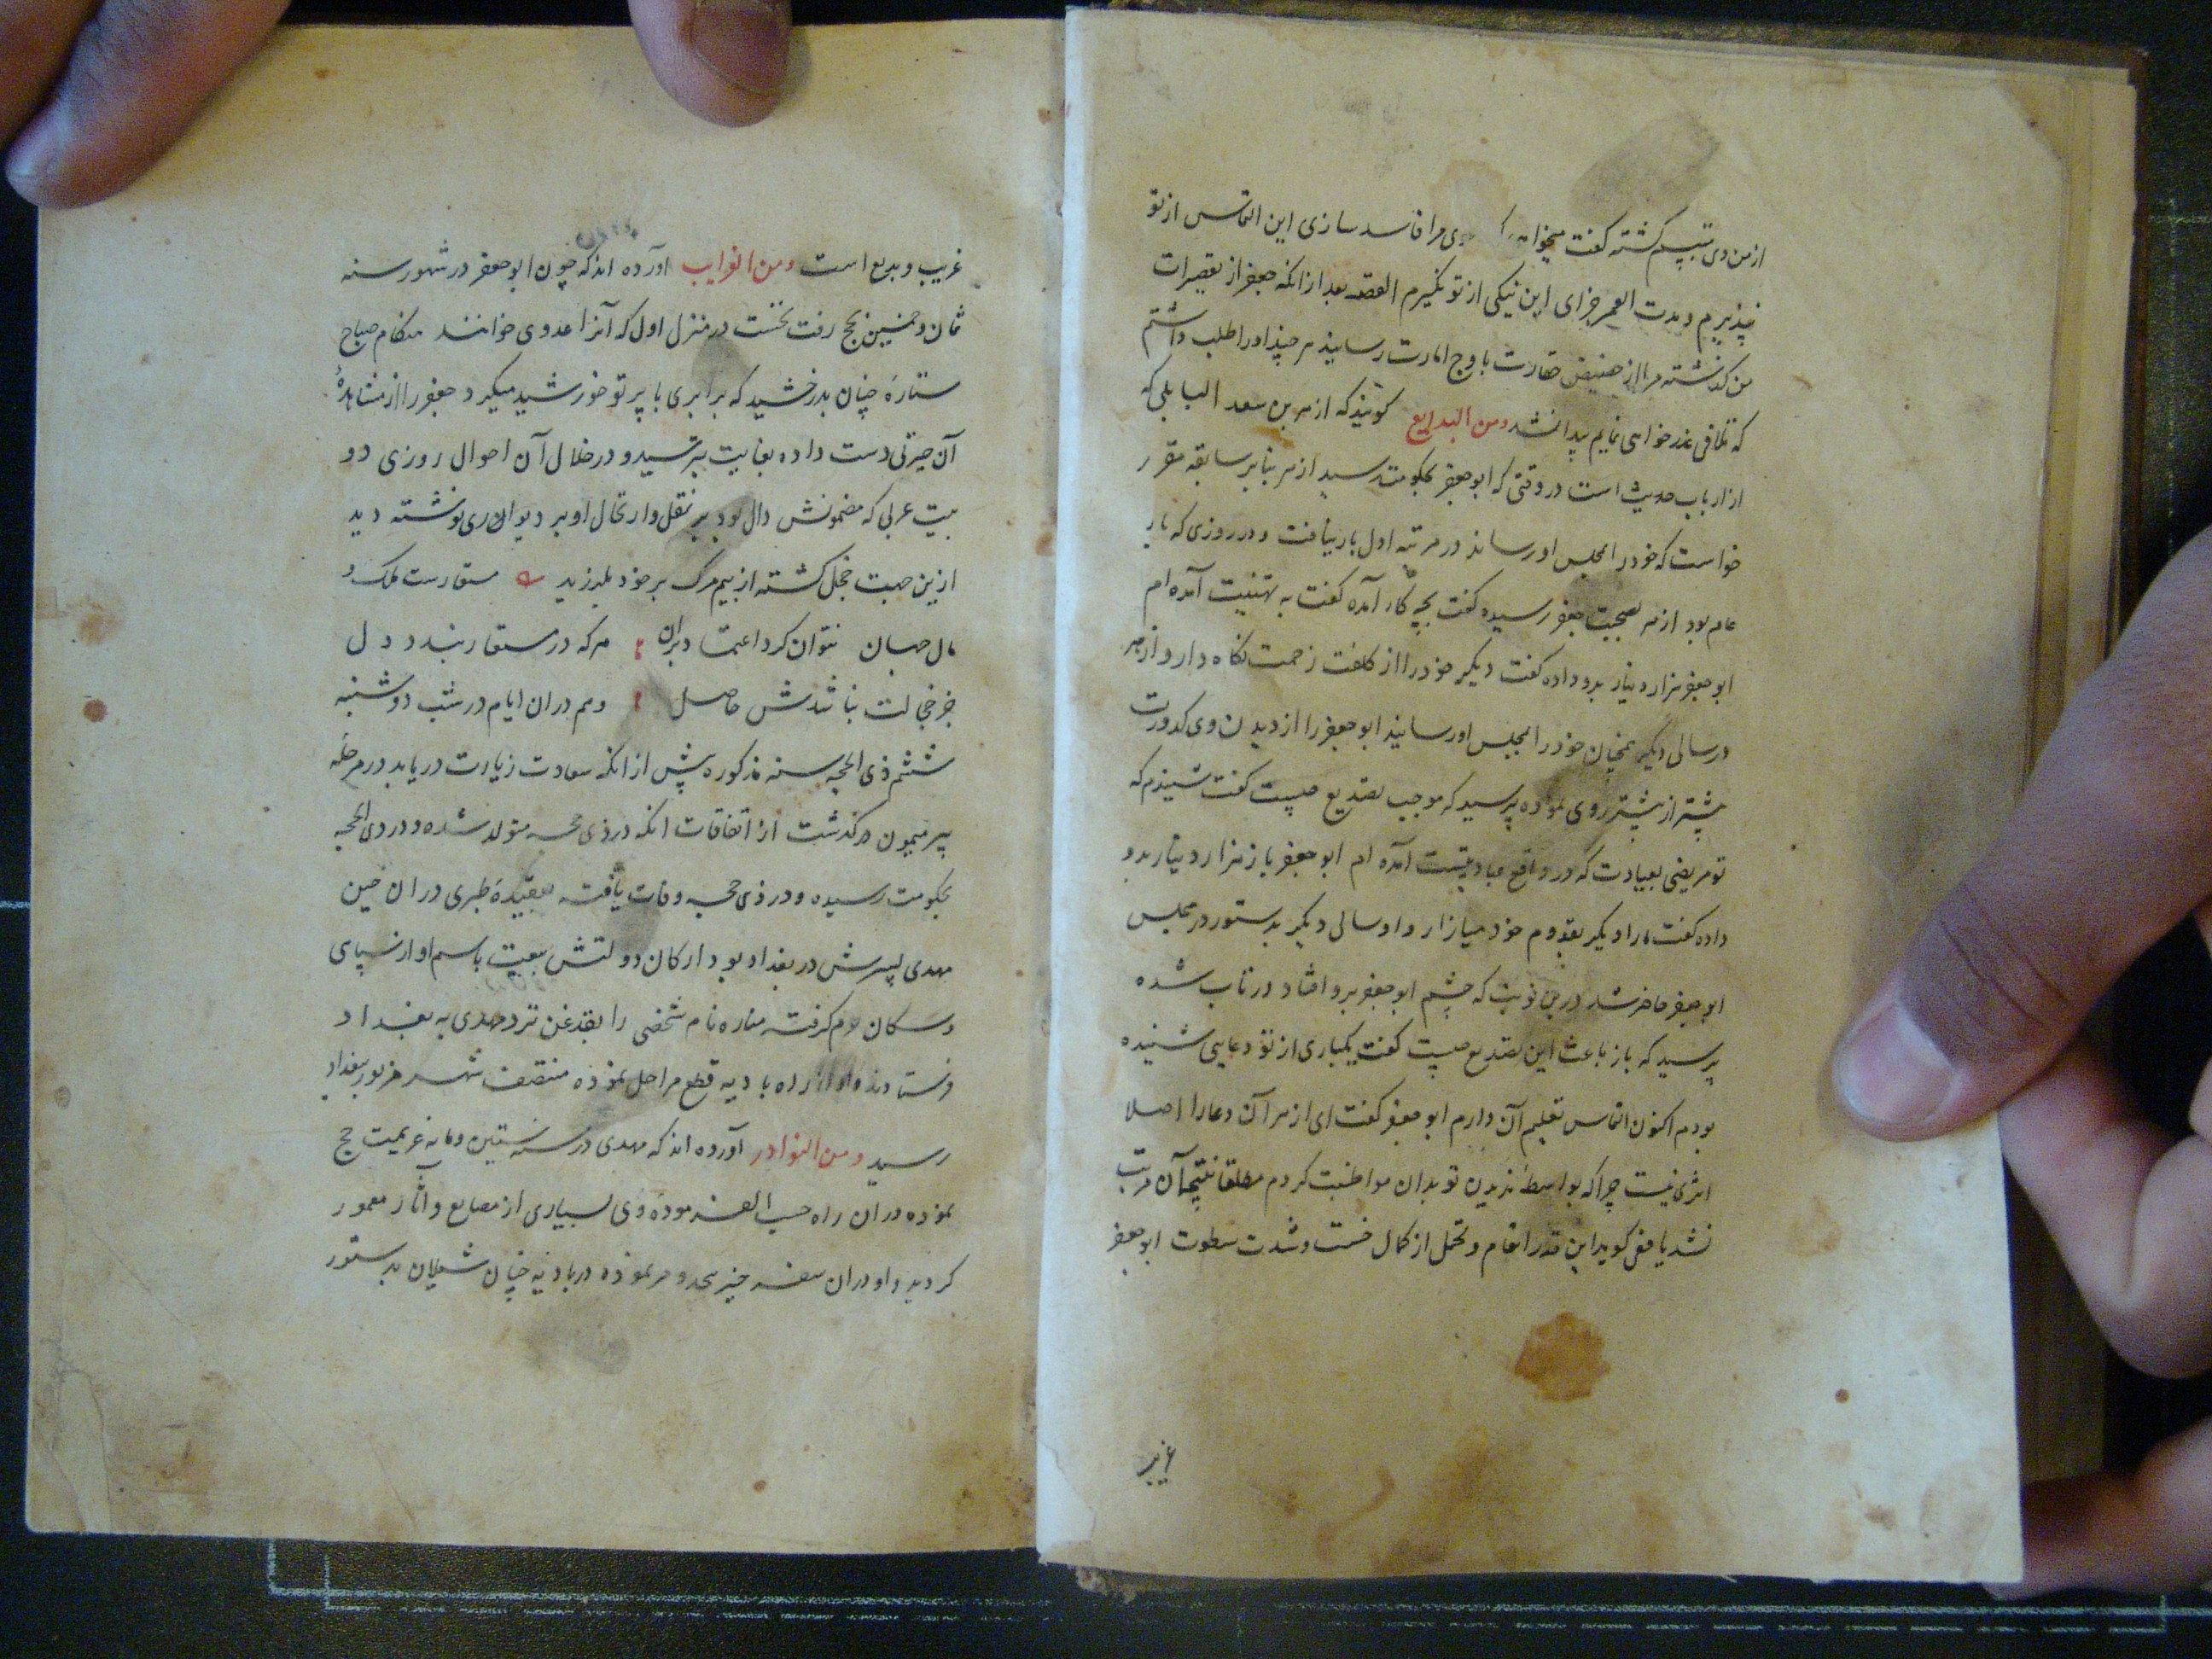 ازمن وی تبسم کشته کفت میخواهی مرا فاسد سازی این التماس از تو
نپذیرم و مدت العمر جزای این نیکی از تو نگیرم القصه بعد از انکه جعفر از تقصیرات
من کذشته مرا از حضیض حقارت باوج امارت رسانید هر چند او را طلب داشتم
که تلافی عذرخواهی نمایم پیدا نشد ومن البدایع کویند که ازهر بن سعد البابلی که
از ارباب حدیث است در وقتی که ابو جعفر بحکومت رسید ازهر بنابر سابقه مقرر
خواست که خود را بمجلس او رساند در مرتبه اول بار نیافت و در روزی که بار
عام بود ازهر بصحبت جعفر رسیده کفت بچه کار آمده کفت به تهنیت آمده ام
ابو جعفر هزار دینار بدو داده کفت دیگر خود را از کلفت زحمت نکاه دار و ازهر
در سالی دیگر همچنان خود را بمجلس او رسانید ابو جعفر را از دیدن وی کدورت
بیشتر از پیشتر روی نموده پرسید که موجب تصدیع چیست کفت شنیدم که
تو مریضی بعیادت که در واقع عبادتیست آمده ام ابو جعفر باز هزار دینار بدو
داده کفت ما را دیگر بقدوم خود میازار و او سالی دیگر بدستور در مجلس
ابو جعفر حاضر شد درین نوبت که چشم ابو جعفر برو افتاد در تاب شده
پرسید که باز باعث این تصدیع چیست کفت یکباری از تو دعایی شنیده
بودم اکنون التماس تعلیم آن دارم ابو جعفر کفت ای ازهر آن دعا را اصلا
اثری نیست چرا که بواسطه ندیدن تو بدان مواظبت کردم مطلقا نتیجه آن مرتب
نشد یافعی کوید این قدر انعام و تحمل از کمال خست و شدت سطوت ابو جعفر
غریب
غریب و بدیع است ومن الغرایب آورده اند که چون ابو جعفر در شهور سنه
ثمان و خمسین بحج رفت نخست در منزل اول که آنرا عدوی خوانند هنکام صباح
ستاره چنان بدرخشید که برابری با پرتو خورشید میکرد جعفر را از مشاهده
آن حیرتی دست داده بغایت بترسید و در خلال آن احوال روزی دو
بیت عربی که مضمونش دال بود بر نقل و ارتحال او بر دیواری نوشته دید
ازین جهت خجل کشته از بیم مرک بر خود بلرزید مستعارست ملک و
مال جهان نتوان کرد اعتماد بران هر که در مستعار بندد دل
جز خجالت نباشدش حاصل وهم دران ایام در شب دوشنبه
ششم ذی الحجه سنه مذکوره پیش از انکه سعادت زیارت دریابد در مرحله
بیر میمون درکذشت از اتفاقات انکه در ذی حجه متولد شده و در ذی الحجه
بحکومت رسیده و در ذی حجه وفات یافته بعقیده طبری دران حین
مهدی پسرش در بغداد بود ارکان دولتش بیعت باسم او از سپاهی
و سکان حرم کرفته مناره نام شخصی را بقدغن نزد مهدی به بغداد
فرستادند و او از راه بادیه قطع مراحل نموده منتصف شهر مزبور ببغداد
رسید ومن النوادر آورده اند که مهدی در سنه ستین ومایه عزیمت حج
نموده دران راه حسب الفرموده وی بسیاری از مصانع و آثار معمور
کردید و او دران سفر خیر نموده در بادیه چنان شیلان بدستور